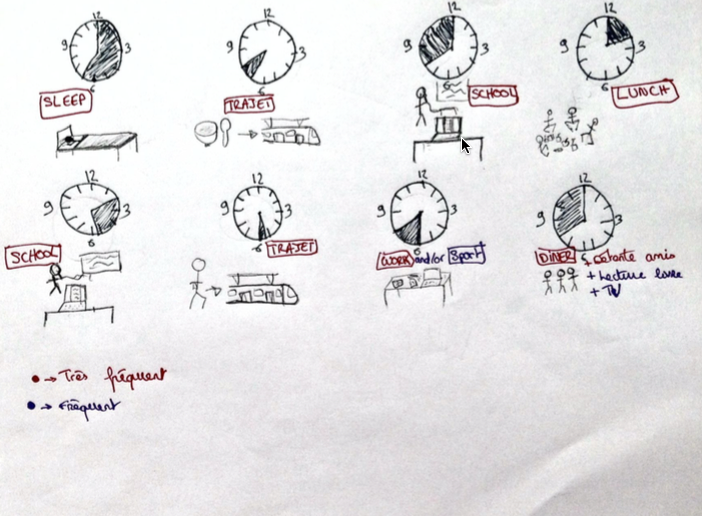 12
9 3
6
SLEEP
12
9 3
6
TRAJET
12
9 3
6
SCHOOL
12
9 3
6
LUNCH
12
9 3
6
SCHOOL
12
9 3
6 TRAJET
12
9 3
6
WORK and/or Sport
12
9 3
6
DINER + détente amis
+ Lecture livre
+ TV
• → Très fréquent
• → Fréquent